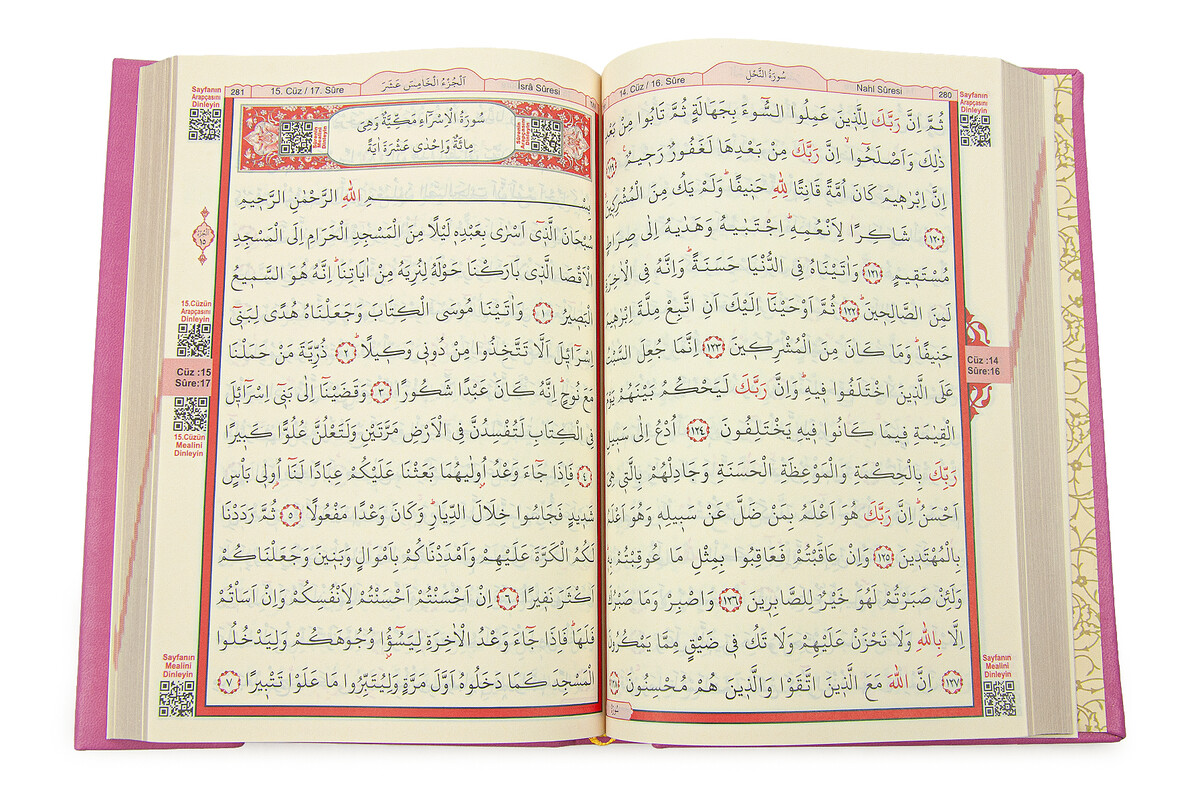 280
Nahl Sûresi
سُورَةُ النَّحْلِ
14. Cüz / 16. Sûre
Sayfanın
Arapçasını
Dinleyin
ثُمَّ اِنَّ رَبَّكَ لِلَّذِينَ عَمِلُوا السُّوءَ بِجَهَالَةٍ ثُمَّ تَابُوا مِنْ بَعْدِ
ذٰلِكَ وَاَصْلَحُوا اِنَّ رَبَّكَ مِنْ بَعْدِهَا لَغَفُورٌ رَحِيمٌ ﴿١١٩﴾
اِنَّ اِبْرٰهِيمَ كَانَ اُمَّةً قَانِتًا لِلّٰهِ حَنِيفًا وَلَمْ يَكُ مِنَ الْمُشْرِكِينَ
﴿١٢٠﴾ شَاكِرًا لِاَنْعُمِهِ اِجْتَبٰيهُ وَهَدٰيهُ اِلٰى صِرَاطٍ
مُسْتَقِيمٍ ﴿١٢١﴾ وَاٰتَيْنَاهُ فِى الدُّنْيَا حَسَنَةً وَاِنَّهُ فِى الْاٰخِرَةِ
لَمِنَ الصَّالِحِينَ ﴿١٢٢﴾ ثُمَّ اَوْحَيْنَا اِلَيْكَ اَنِ اتَّبِعْ مِلَّةَ اِبْرٰهِيمَ
حَنِيفًا وَمَا كَانَ مِنَ الْمُشْرِكِينَ ﴿١٢٣﴾ اِنَّمَا جُعِلَ السَّبْتُ
عَلَى الَّذِينَ اخْتَلَفُوا فِيهِ وَاِنَّ رَبَّكَ لَيَحْكُمُ بَيْنَهُمْ يَوْمَ
الْقِيٰمَةِ فِيمَا كَانُوا فِيهِ يَخْتَلِفُونَ ﴿١٢٤﴾ اُدْعُ اِلٰى سَبِيلِ
رَبِّكَ بِالْحِكْمَةِ وَالْمَوْعِظَةِ الْحَسَنَةِ وَجَادِلْهُمْ بِالَّتِى هِىَ
اَحْسَنُ اِنَّ رَبَّكَ هُوَ اَعْلَمُ بِمَنْ ضَلَّ عَنْ سَبِيلِهِ وَهُوَ اَعْلَمُ
بِالْمُهْتَدِينَ ﴿١٢٥﴾ وَاِنْ عَاقَبْتُمْ فَعَاقِبُوا بِمِثْلِ مَا عُوقِبْتُمْ بِهِ
وَلَئِنْ صَبَرْتُمْ لَهُوَ خَيْرٌ لِلصَّابِرِينَ ﴿١٢٦﴾ وَاصْبِرْ وَمَا صَبْرُكَ
اِلَّا بِاللّٰهِ وَلَا تَحْزَنْ عَلَيْهِمْ وَلَا تَكُ فِى ضَيْقٍ مِمَّا يَمْكُرُونَ
﴿١٢٧﴾ اِنَّ اللّٰهَ مَعَ الَّذِينَ اتَّقَوْا وَالَّذِينَ هُمْ مُحْسِنُونَ ﴿١٢٨﴾
Cüz :14
Sûre:16
Sayfanın
Mealini
Dinleyin
İsrâ Sûresi
اَلْجُزْءُ الْخَامِسَ عَشَرَ
15. Cüz / 17. Sûre
281
Sayfanın
Arapçasını
Dinleyin
سُورَةُ الْاِسْرَاءِ مَكِّيَّةٌ وَهِىَ
مِائَةٌ وَاِحْدٰى عَشْرَةَ اٰيَةً
بِسْمِ اللّٰهِ الرَّحْمٰنِ الرَّحِيمِ
سُبْحَانَ الَّذِى اَسْرٰى بِعَبْدِهِ لَيْلًا مِنَ الْمَسْجِدِ الْحَرَامِ اِلَى الْمَسْجِدِ
الْاَقْصَا الَّذِى بَارَكْنَا حَوْلَهُ لِنُرِيَهُ مِنْ اٰيَاتِنَا اِنَّهُ هُوَ السَّمِيعُ
الْبَصِيرُ ﴿١﴾ وَاٰتَيْنَا مُوسَى الْكِتَابَ وَجَعَلْنَاهُ هُدًى لِبَنِى
اِسْرَائِلَ اَلَّا تَتَّخِذُوا مِنْ دُونِى وَكِيلًا ﴿٢﴾ ذُرِّيَّةَ مَنْ حَمَلْنَا
مَعَ نُوحٍ اِنَّهُ كَانَ عَبْدًا شَكُورًا ﴿٣﴾ وَقَضَيْنَا اِلٰى بَنِى اِسْرَائِلَ
فِى الْكِتَابِ لَتُفْسِدُنَّ فِى الْاَرْضِ مَرَّتَيْنِ وَلَتَعْلُنَّ عُلُوًّا كَبِيرًا
﴿٤﴾ فَاِذَا جَاءَ وَعْدُ اُولٰيهُمَا بَعَثْنَا عَلَيْكُمْ عِبَادًا لَنَا اُولِى بَاْسٍ
شَدِيدٍ فَجَاسُوا خِلَالَ الدِّيَارِ وَكَانَ وَعْدًا مَفْعُولًا ﴿٥﴾ ثُمَّ رَدَدْنَا
لَكُمُ الْكَرَّةَ عَلَيْهِمْ وَاَمْدَدْنَاكُمْ بِاَمْوَالٍ وَبَنِينَ وَجَعَلْنَاكُمْ
اَكْثَرَ نَفِيرًا ﴿٦﴾ اِنْ اَحْسَنْتُمْ اَحْسَنْتُمْ لِاَنْفُسِكُمْ وَاِنْ اَسَاْتُمْ
فَلَهَا فَاِذَا جَاءَ وَعْدُ الْاٰخِرَةِ لِيَسُؤُا وُجُوهَكُمْ وَلِيَدْخُلُوا
الْمَسْجِدَ كَمَا دَخَلُوهُ اَوَّلَ مَرَّةٍ وَلِيُتَبِّرُوا مَا عَلَوْا تَتْبِيرًا ﴿٧﴾
15.Cüzün
Arapçasını
Dinleyin
Cüz :15
Sûre:17
15.Cüzün
Mealini
Dinleyin
Sayfanın
Mealini
Dinleyin